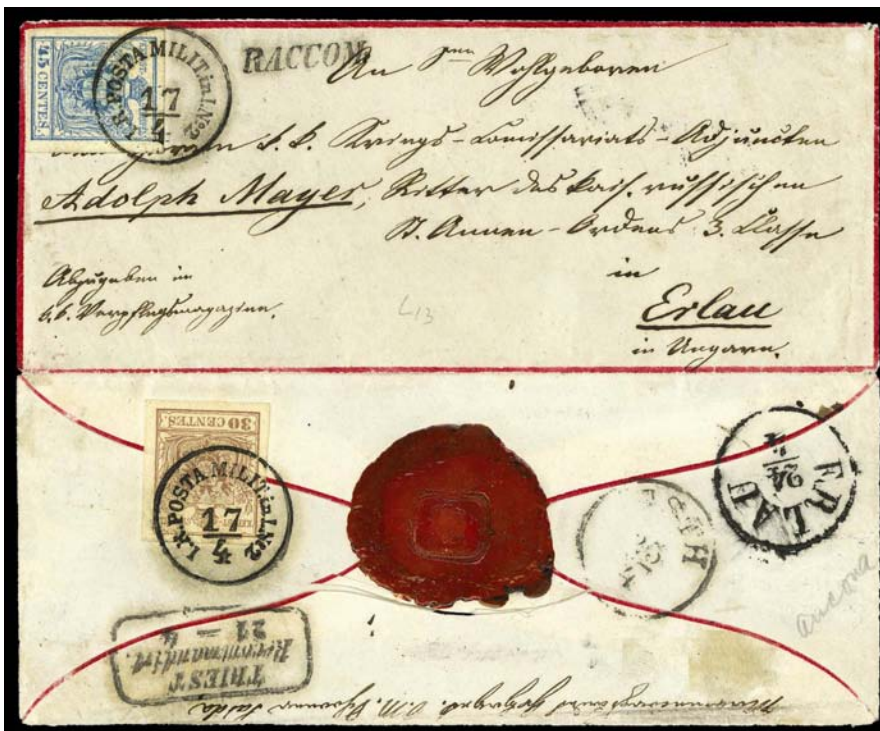 45 CENTES.
I.R. POSTA MILIT. in I. No 2
17
4
RACCOM.
An Wohlgeboren
k. k. Kriegs-Commissariats-Adjuncten
Adolph Mayer, Ritter des kais. russischen
St. Annen-Ordens 3. Classe
in
Abzugeben im
k. k. Verpflegsmagazine.
L 13
Erlau
in Ungarn.
30 CENTES
I.R. POSTA MILIT. in I. No 2
17
4
ERLAU
24
4
ancona
TRIEST
Recommandirt.
21 — 4